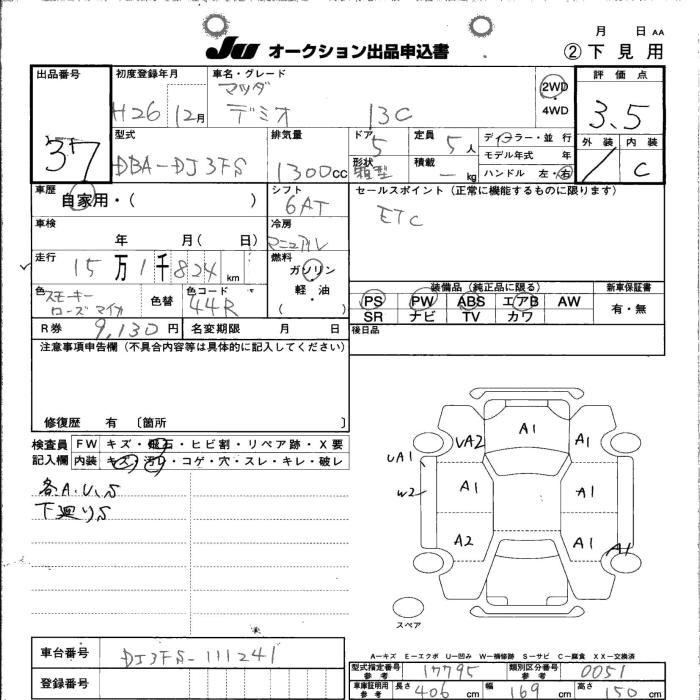 月 日 AA
JU オークション出品申込書 ②下見用
出品番号 初度登録年月 車名・グレード 評価点
37 H26 12月 マツダ デミオ 13C 2WD 4WD 3.5
型式 排気量 ドア 定員 ディーラー・並行 外装 内装
DBA-DJ3FS 1300cc 5 5人 モデル年式 年 C
形状 箱型 積載 - kg ハンドル 左・右
車歴 シフト セールスポイント (正常に機能するものに限ります)
自家用・( ) 6AT ETC
車検 冷房
年 月( 日) マニュアル
走行 燃料
15万1千824km ガソリン
軽・油
( )
色 スモーキーローズマイカ 色替 色コード 44R
装備品(純正品に限る) 新車保証書
PS PW ABS エアB AW 有・無
SR ナビ TV カワ
R券 9,130円 名変期限 月 日 後日品
注意事項申告欄(不具合内容等は具体的に記入してください)
修復歴 有 〔箇所 〕
検査員 FW キズ・飛石・ヒビ割・リペア跡・X要
記入欄 内装 キズ・汚レ・コゲ・穴・スレ・キレ・破レ
各A.U.S
下廻りS
A1
UA2 A1
UA1
W2 A1 A1
A2 A1 A1
スペア
A-キズ E-エクボ U-凹み W-補修跡 S-サビ C-腐食 XX-交換済
車台番号 DJ3FS-111241
登録番号
型式指定番号 参考 17795 類別区分番号 参考 0051
車庫証明用 参考 長さ 406cm 幅 169cm 高さ 150cm